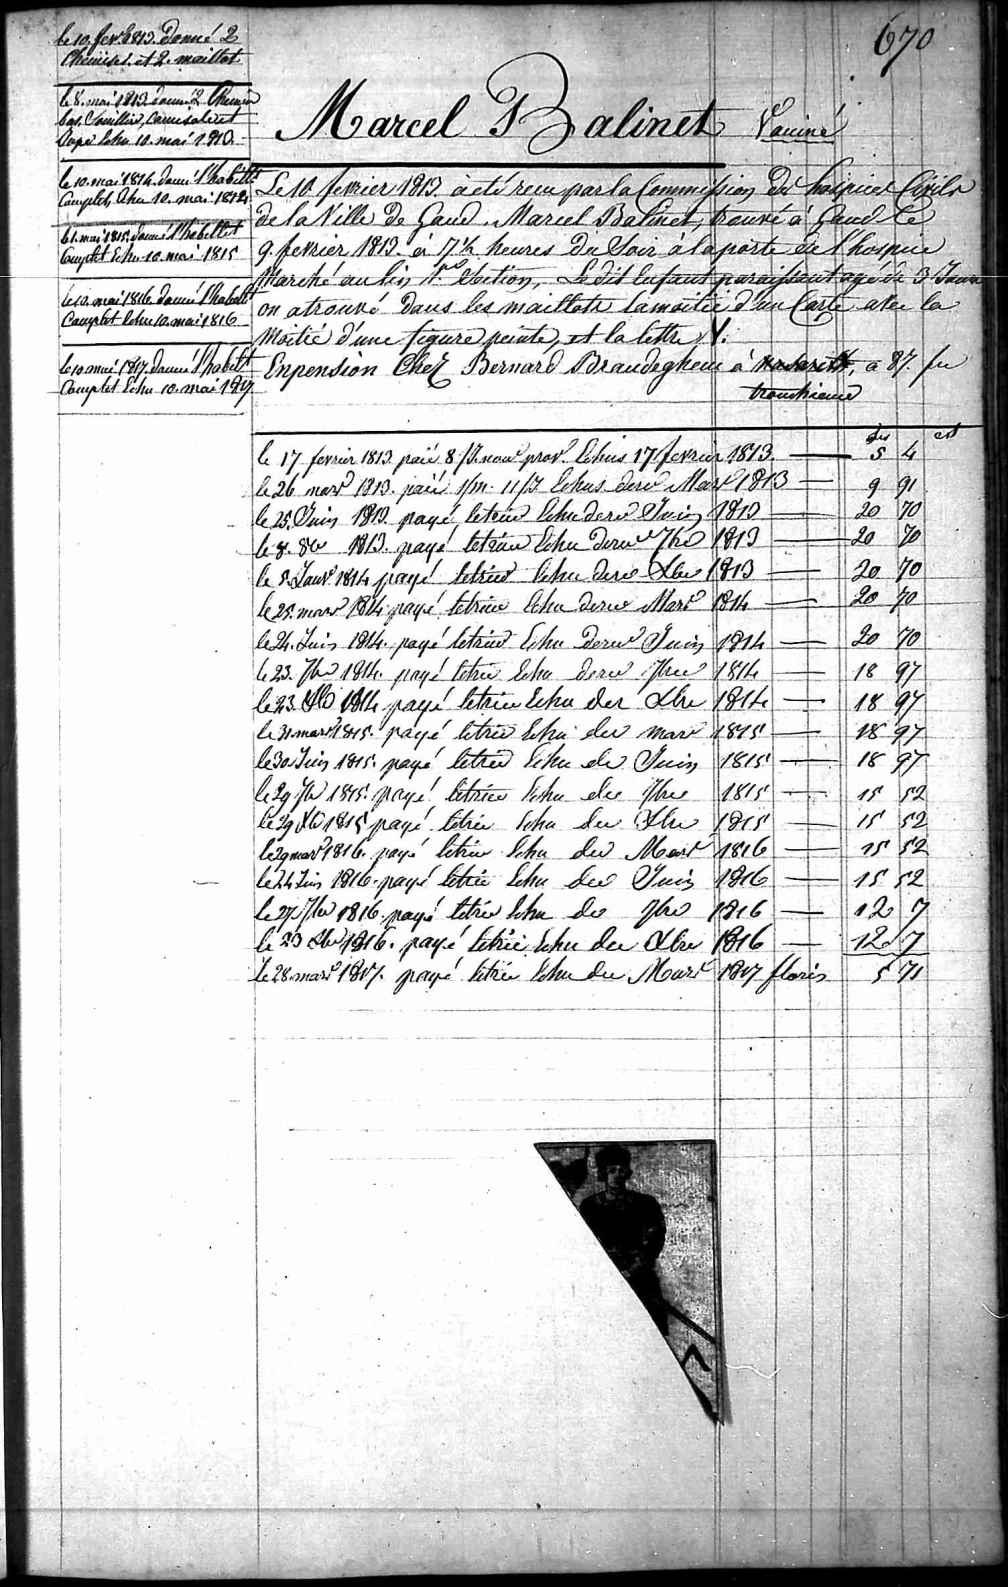 670
le 10. fevr 1813. donné 2
Chemises et 2 maillot
le 8. mai 1813 donné 2 Chemis
bas, Soulier, Camisole et
Jupe Echu 10. mai 1813
le 10. mai 1814. donné l'habillt
Complet, Echu 10. mai 1814
le 1. mai 1815. donné l'habillet
Complet Echu 10. mai 1815
le 10. mai 1816 donné l'habillt
Complet Echu 10. mai 1816
le 10 mai 1817. donné l'habillt
Complet Echu 10. mai 1817
Marcel Balinet Vaciné
Le 10 fevrier 1813. a été recu par la Commission Des hospices Civils
de la Ville De Gand. Marcel Balinet, trouvé à Gand le
9. fevrier 1813. à 7 1/2 heures Du Soir à la porte de l'hospice
Marché au lin 1re Section, Le dit Enfant paraissant agé de 3 Jours
on a trouvé dans les maillots la moitié d'un Carte avec la
Moitié d'une figure peinte, et la lettre V.
En pension Chez Bernard Braudeghem à, a 87. fr
tronchienne
le 17 fevrier 1813 paié 8/J. nour prov. Echus 17 fevrier 1813 5 4
le 26 mars 1813. paié 1/m. 11/J Echus derr Mars 1813 9 91
le 25. Juin 1813. payé, letrim Echu derr Juin 1813 20 70
le 8. 8re 1813. payé letrim Echu derr 7bre 1813 20 70
le 5. Janvr 1814 payé letrim Echu derr Xbre 1813 20 70
le 25. mars 1814 payé letrim Echu derr Mars 1814 20 70
le 24. Juin 1814. payé letrim Echu derr Juin 1814 20 70
le 23. 7br 1814. payé letrim Echu derr 7bre 1814 18 97
le 23. Xbr 1814 payé letrim Echu der Xbre 1814 18 97
le 31 mars 1815. payé letrim Echu der mars 1815 18 97
le 30 Juin 1815. payé letrim Echu de Juin 1815 18 97
le 29 7br 1815. payé letrim Echu der 7bre 1815 15 52
le 29 Xbr 1815 payé letrim Echu der Xbre 1815 15 52
le 29 mars 1816. payé letrim Echu der Mars 1816 15 52
le 24 Juin 1816. payé letrim Echu der Juin 1816 15 52
le 27. 7br 1816. payé letrim Echu de 7bre 1816 12 7
le 23 Xbr 1816. payé letrim Echu der Xbre 1816 12 7
le 28 mars 1817. payé letrim Echu der Mars 1817 floris 5 71